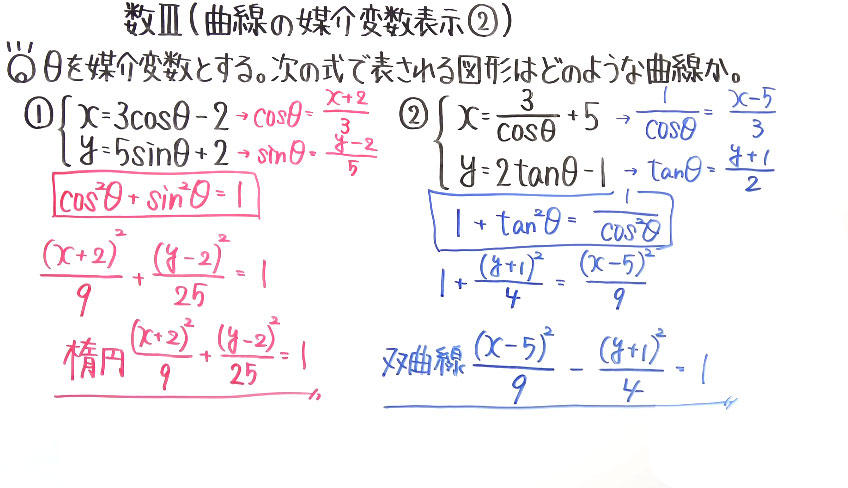 数Ⅲ(曲線の媒介変数表示②)
θを媒介変数とする。次の式で表される図形はどのような曲線か。
① { x=3cosθ-2 → cosθ= (x+2)/3
y=5sinθ+2 → sinθ= (y-2)/5
cos²θ+sin²θ=1
(x+2)²/9 + (y-2)²/25 = 1
楕円 (x+2)²/9 + (y-2)²/25 = 1
② { x= 3/cosθ +5 → 1/cosθ = (x-5)/3
y=2tanθ-1 → tanθ= (y+1)/2
1+tan²θ= 1/cos²θ
1+ (y+1)²/4 = (x-5)²/9
双曲線 (x-5)²/9 - (y+1)²/4 = 1